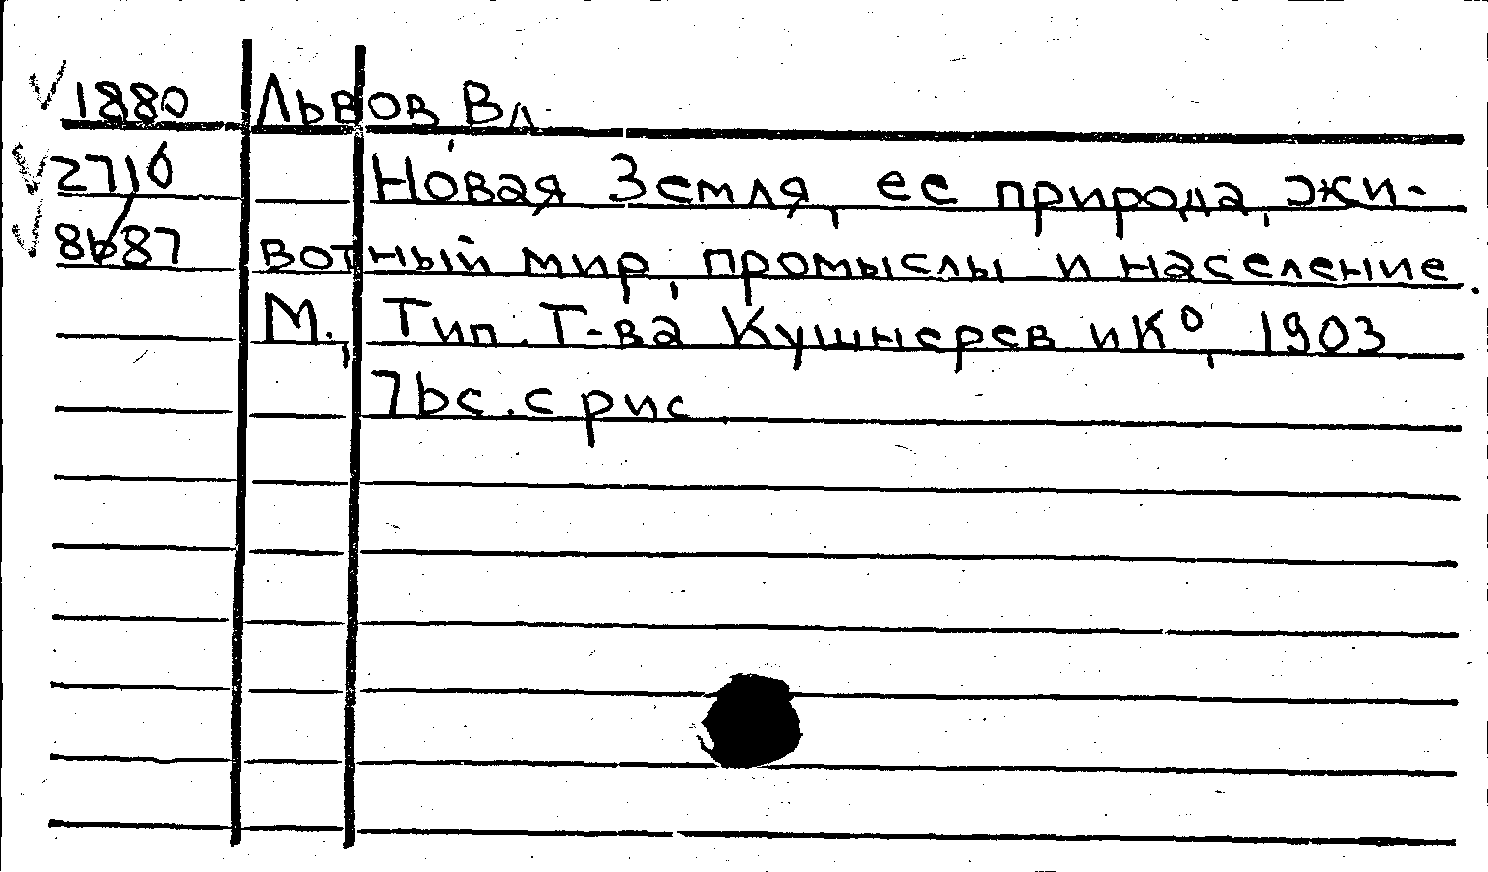 1880 Львов Вл.
2710 Новая Земля, ее природа, жи-
8687 вотный мир, промыслы и население.
М., Тип. Т-ва Кушнерев и К°, 1903
76с. с рис